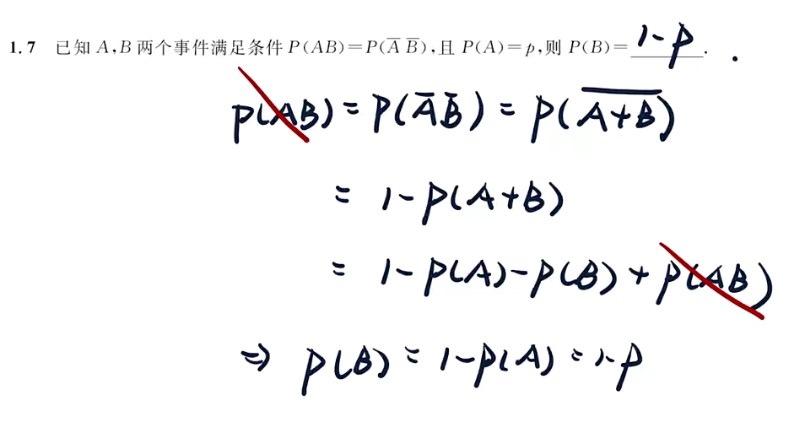 1.7 已知 A,B 两个事件满足条件 P(AB)=P(A̅ B̅),且 P(A)=p,则 P(B)= 1-p .
P(AB) = P(A̅B̅) = P(\overline{A+B})
= 1-P(A+B)
= 1-P(A)-P(B)+P(AB)
⇒ P(B) = 1-P(A) = 1-P